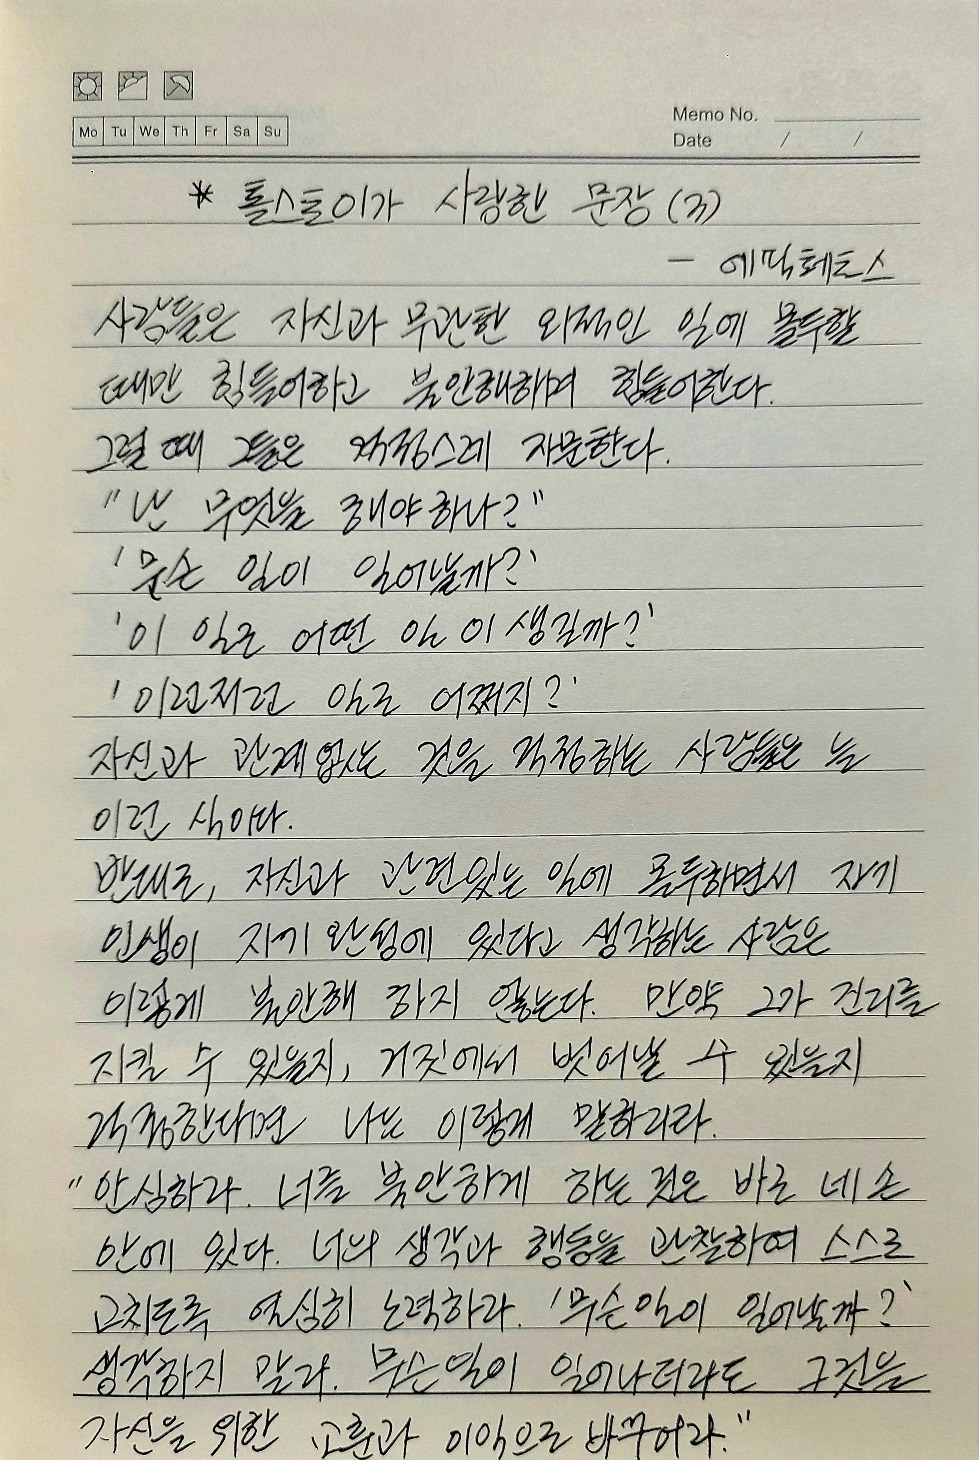 Mo Tu We Th Fr Sa Su
Memo No.
Date / /
* 톨스토이가 사랑한 문장 (3)
- 에픽테토스
사람들은 자신과 무관한 외적인 일에 몰두할
때만 힘들어하고 불안해하며 힘들어한다.
그럴 때 그들은 걱정스레 자문한다.
"난 무엇을 해야하나?"
'무슨 일이 일어날까?'
'이 일로 어떤 일이 생길까?'
'이런저런 일로 어쩌지?'
자신과 관계없는 것을 걱정하는 사람들은 늘
이런 식이다.
반대로, 자신과 관련있는 일에 몰두하면서 자기
인생이 자기 완성에 있다고 생각하는 사람은
이렇게 불안해 하지 않는다. 만약 그가 진리를
지킬 수 있을지, 거짓에서 벗어날 수 있을지
걱정한다면 나는 이렇게 말하리라.
"안심하라. 너를 불안하게 하는 것은 바로 네 손
안에 있다. 너의 생각과 행동을 관찰하여 스스로
고치도록 열심히 노력하라. '무슨일이 일어날까?'
생각하지 말라. 무슨일이 일어나더라도 그것을
자신을 위한 교훈과 이익으로 바꾸어라."